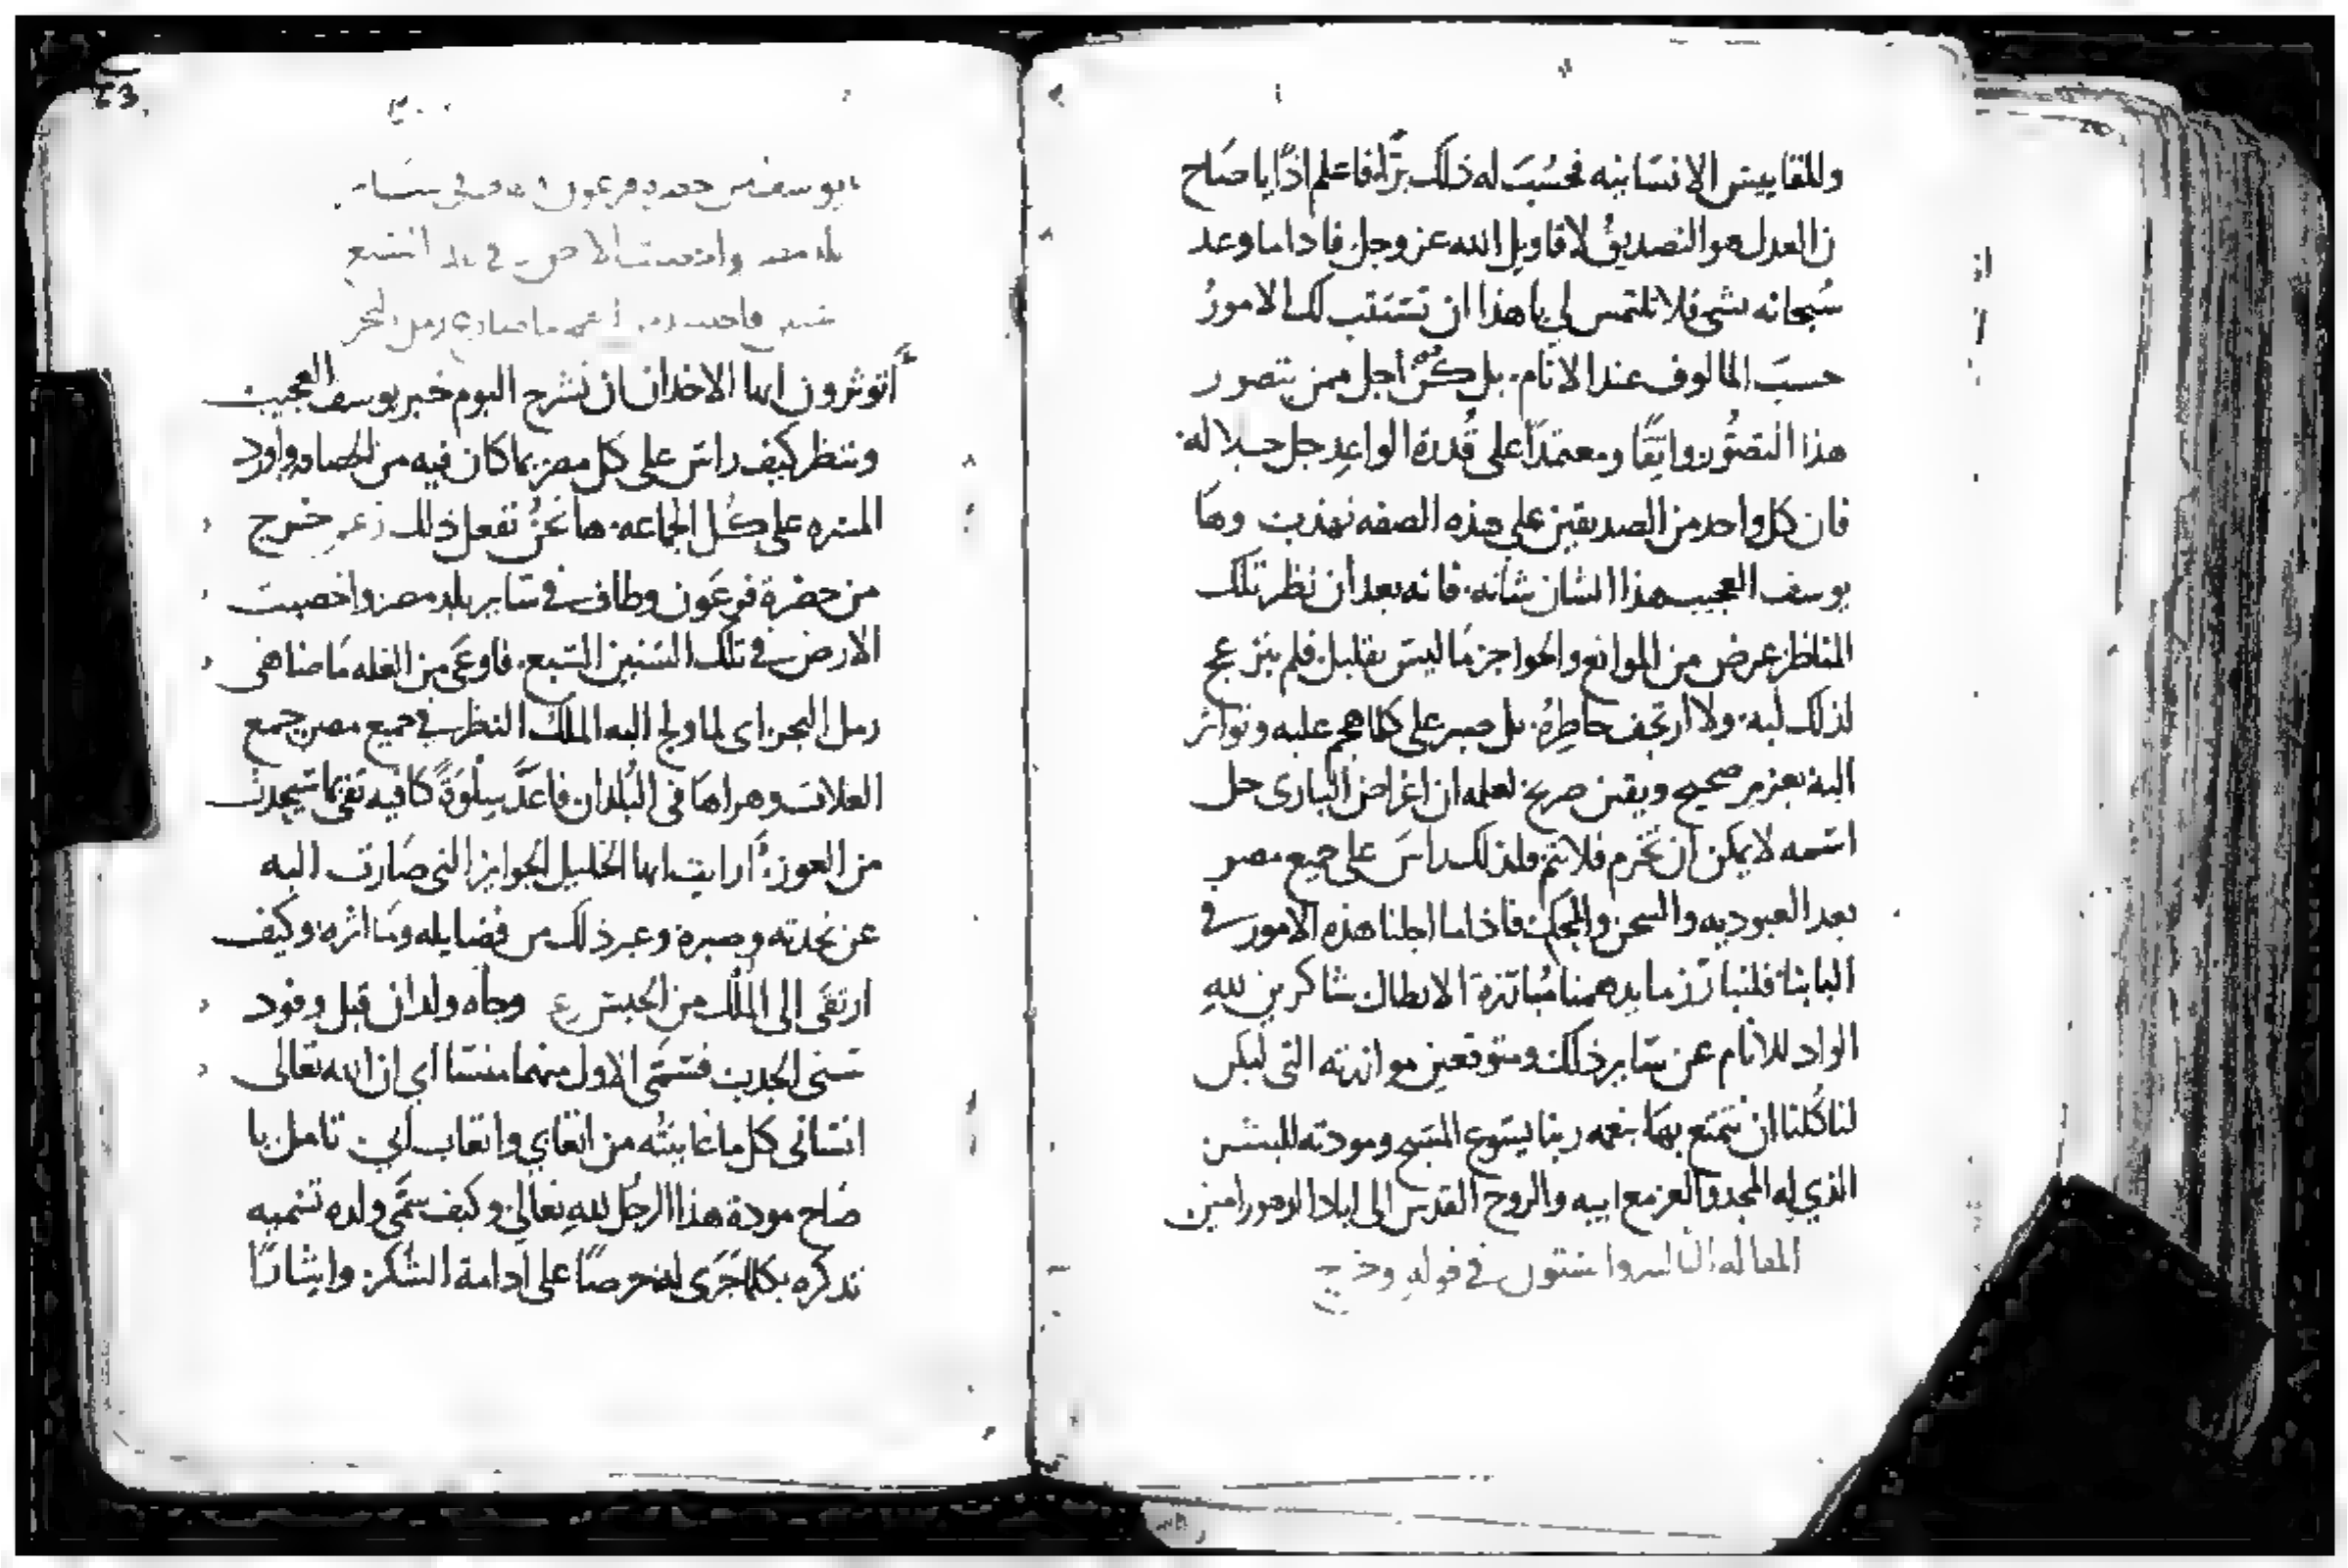 وللمقاييس الانسانيه فحُسبَ له ذلك برًّا فاعلم اذًا يا صَاح
ن العدل هو التصديق لاقاويل الله عز وجل فاذا ما وعد
سُبحانه بشى فلا تلتمس لي يا هذا ان تستتب لك الامورُ
حسبَ المالوف عند الانام. بل كُنْ أجل ممن يتصور
هذا التصوُّر واثقًا ومعتمدًا على قُدرة الواعِد جل جلاله.
فان كل واحد من الصديقين على هذه الصفه تهذب وها
يوسف العجيب هذا الشان شانه. فانه بعد أن نظر تلك
المناظر عرض من الموانع والحواجز مَا ليسَ بقليل فلم ينزعج
لذلك لبه. ولا ارتجف خاطِرُه. بل صبر على كلما هجم عليه وتواتر
اليه بعزم صحيح ويقين صريح لعلمه ان اغراض البارى جل
اسمه لا يمكن أن تخرم فلا تتم فلذلك راسَ على جميع مصر
بعد العبوديه والسجن والمحك فاذا ما اجلنا هذه الامور في
البابنا فلنبارز ما يدهمنا مُبارزة الابطال شاكرين للهِ
الواد للانام عن سَاير ذلك ومتوقعين موازرته التى ليكن
لنا كُلنا ان نتمتع بهَا بنعمه ربنا يسوع المسيح ومودته للبشر
الذي له المجد والعز مع ابيه والروح القدس الى اباد الدهور امين
المقاله الثالثه والستون في قوله وخرج
يوسف من حضرة فرعون
بلد مصر واخصبت الارض في تلك السبع
سنين ما صاهى رمل البحر
أتوثرون ايها الاخدان ان نشرح اليوم خبر يوسف العجيب
وننظر كيف راسَ على كل مصر بما كان فيه من المصادر واورد
الميره على كُل الجماعه. ها نحنُ نفعل ذلك زعم خرج
من حضرة فرعَون وطاف في سَاير بلد مصر واخصبت
الارض في تلك السَنين السَبع. فاوعَى من الغله مَا ضاهى
رمل البحر. اى لما ولج اليه الملك النظر في جميع مصر جمع
الغلات وهراهَا في البُلدان فاعَدَّ سِلْوَةً كافيه تفى بما سيحدث
من العوز. أرايت ايها الخليل الجوايز التى صَارت اليه
عن نجدته وصبره وغير ذلك من فضايله ومَااثره. وكيف
ارتقَى الى المُلك من الحبس ع وجاه ولدان قبل وفود
سنى الجدب فسَمَّى الاول منهما منسَا اي ان الله تعالى
انسَانى كل ما عاينتُه من اتعَابي واتعَاب أبي تامل يا
صَاح مودة هذا الرجُل للهِ تعَالى وكيف سمَّى ولده تسميه
تذكره بكلمَا جَرَى له حرصًا على ادامة الشُكر وايثارًا